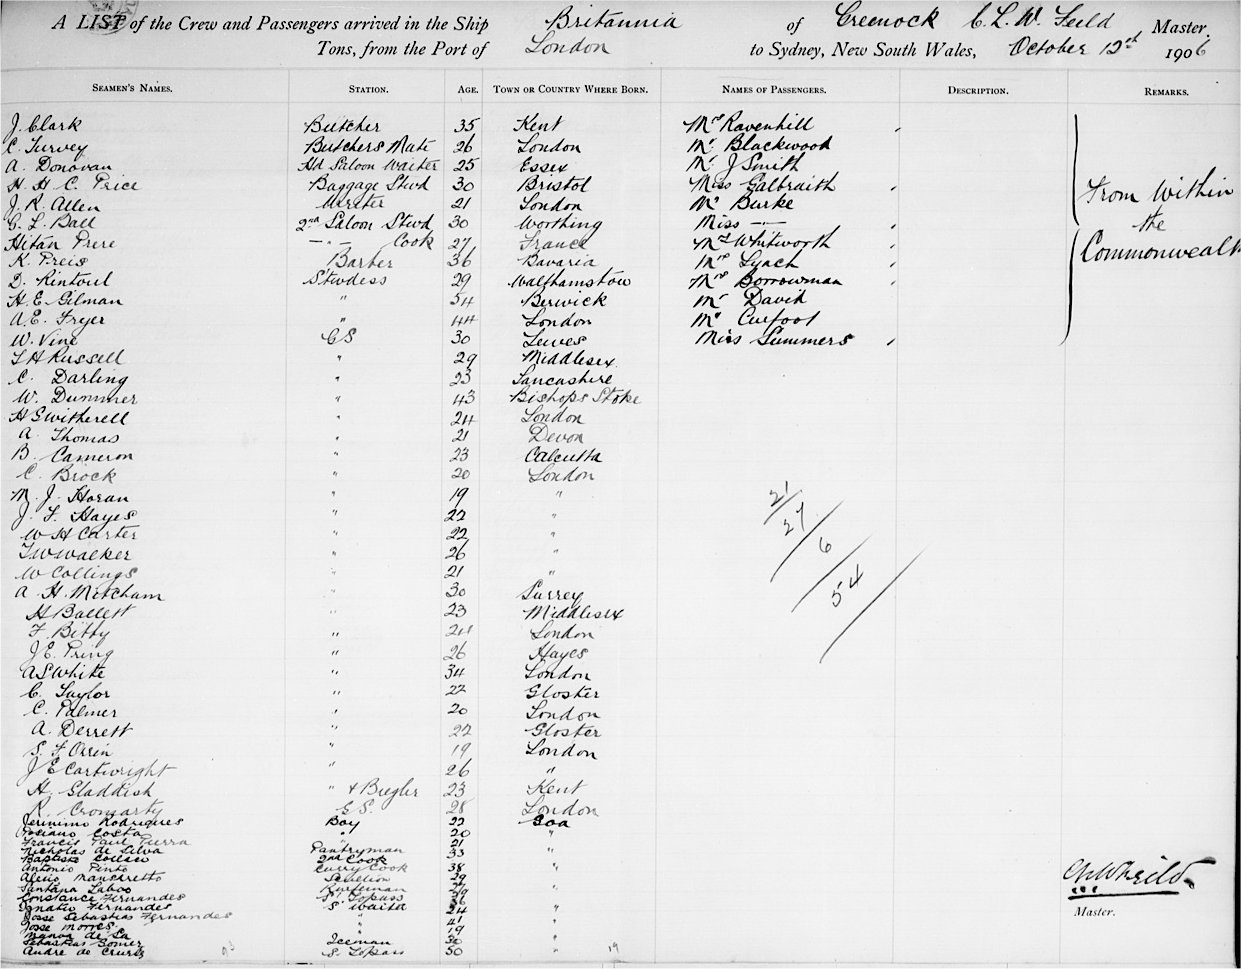 A LIST of the Crew and Passengers arrived in the Ship Britannia of Greenock C. L. W. Feild Master,
Tons, from the Port of London to Sydney, New South Wales, October 12th 1906
SEAMEN'S NAMES. STATION. AGE. TOWN OR COUNTRY WHERE BORN. NAMES OF PASSENGERS. DESCRIPTION. REMARKS.
J. Clark Butcher 35 Kent Mrs Ravenhill
C. Turvey Butchers Mate 26 London Mr Blackwood
A. Donovan Hd Saloon Waiter 25 Essex Mr J Smith
H. H. C. Price Baggage Stwd 30 Bristol Miss Galbraith From Within
J. R. Allen Waiter 21 London Mr Burke
C. L. Ball 2nd Saloon Stwd 30 Worthing Miss —"— the
Prere —"— Cook 27 France Mrs Whitworth Commonwealth
K. Preis Barber 36 Bavaria Mrs Lynch
D. Rintoul Stwdess 29 Walthamstow Mrs Borrowman
H. E. Gilman " 54 Berwick Mr David
A. E. Fryer " 44 London Mr Curfoot
W. Vine GS 30 Lewes Miss Summers
Russell " 29 Middlesex
C. Darling " 23 Lancashire
W. Dummer " 43 Bishops Stoke
H Switherell " 24 London
A. Thomas " 21 Devon
B. Cameron " 23 Calcutta
C. Brock " 20 London
M. J. Horan " 19 "
J. F. Hayes " 22 "
W H Carter " 22 "
Walker " 26 "
W Collings " 21 "
A. H. Mitcham " 30 Surrey
H Ballett " 23 Middlesex
F. Bibby " 24 London
J. E. Pring " 26 Hayes
A S White " 34 London
C. Taylor " 22 Gloster
C. Palmer " 20 London
A. Derrett " 22 Gloster
S. F. Orrin " 19 London
J E Cartwright " 26 "
H. Gladdish " & Bugler 23 Kent
R. Cromarty G. S. 28 London
Jeronimo Rodrigues Boy 22 Goa
Costa " 20 "
Francis Paul " 21 "
Nicholas de Silva Pantryman 33 "
Baptista 2nd Cook "
Antonio Pinto Curry Cook 38 "
Aleixo 29 "
Santana Lobo "
Constance Fernandes S. Topass "
Ignatio Fernandes S. 24 "
Josse Sebastiao Fernandes " 41 "
Josse " 19 "
de Sa
Sebastiao Gomes Iceman 30 "
Andre de Cruz S. Topass 50 "
21
27
6
54
Master.
93
19